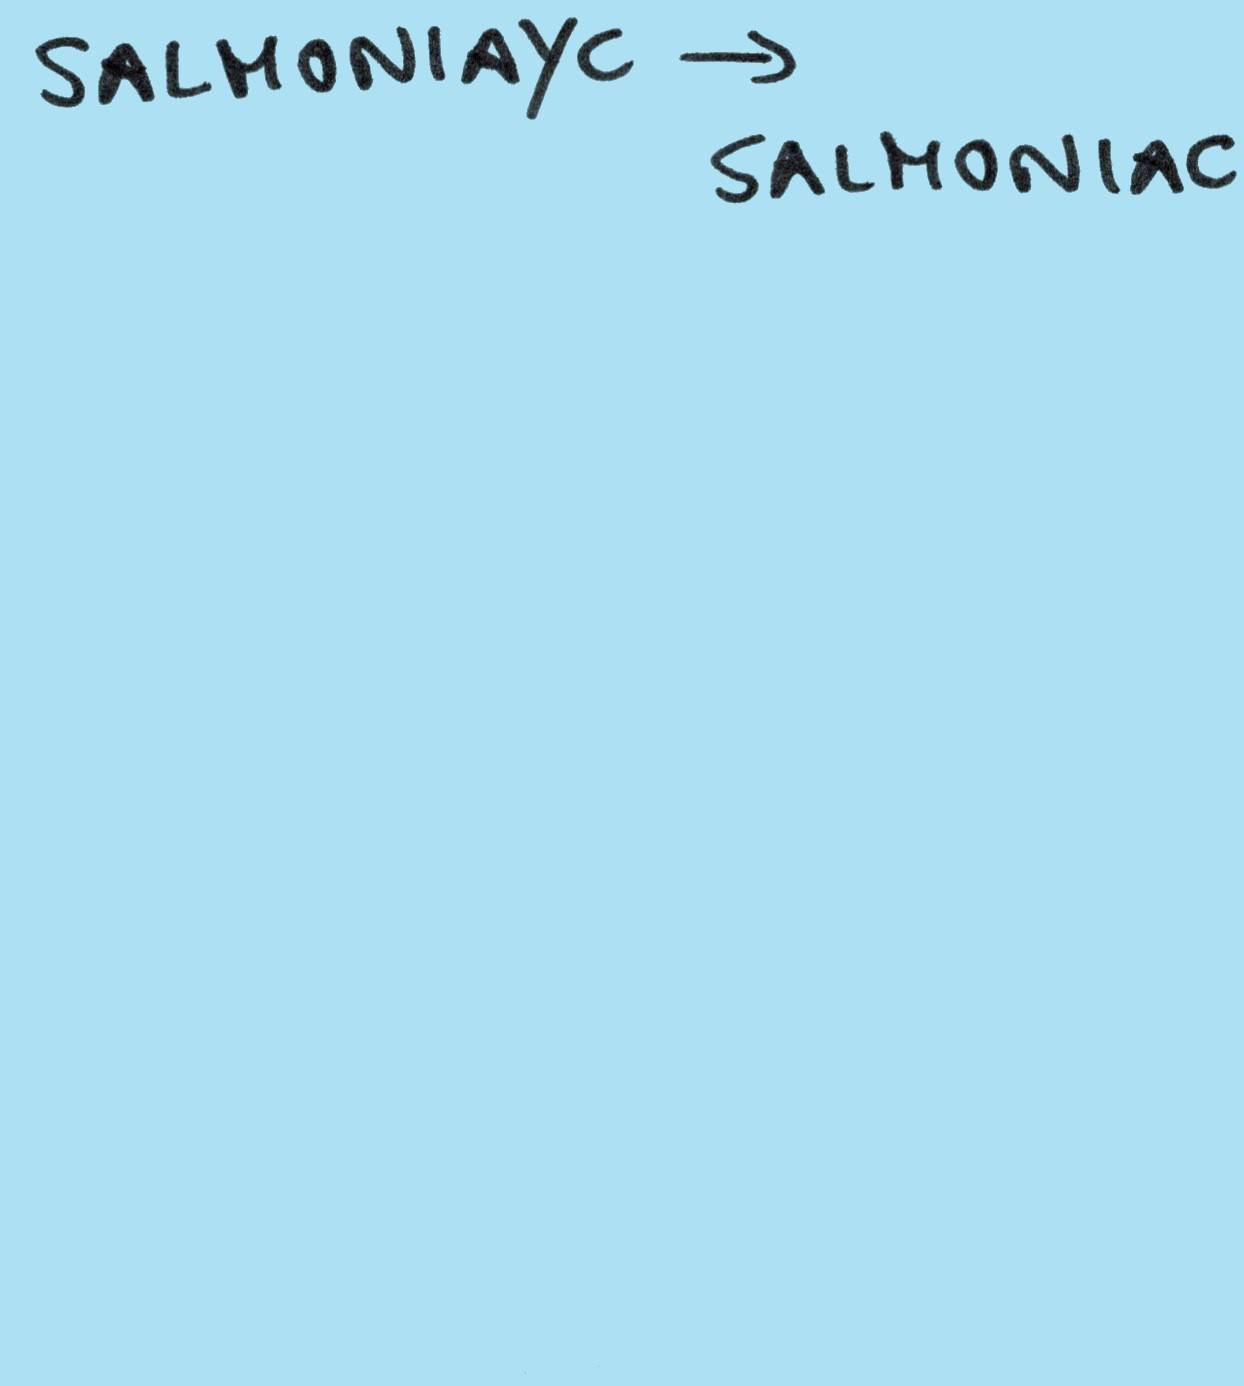 SALMONIAYC →
SALMONIAC